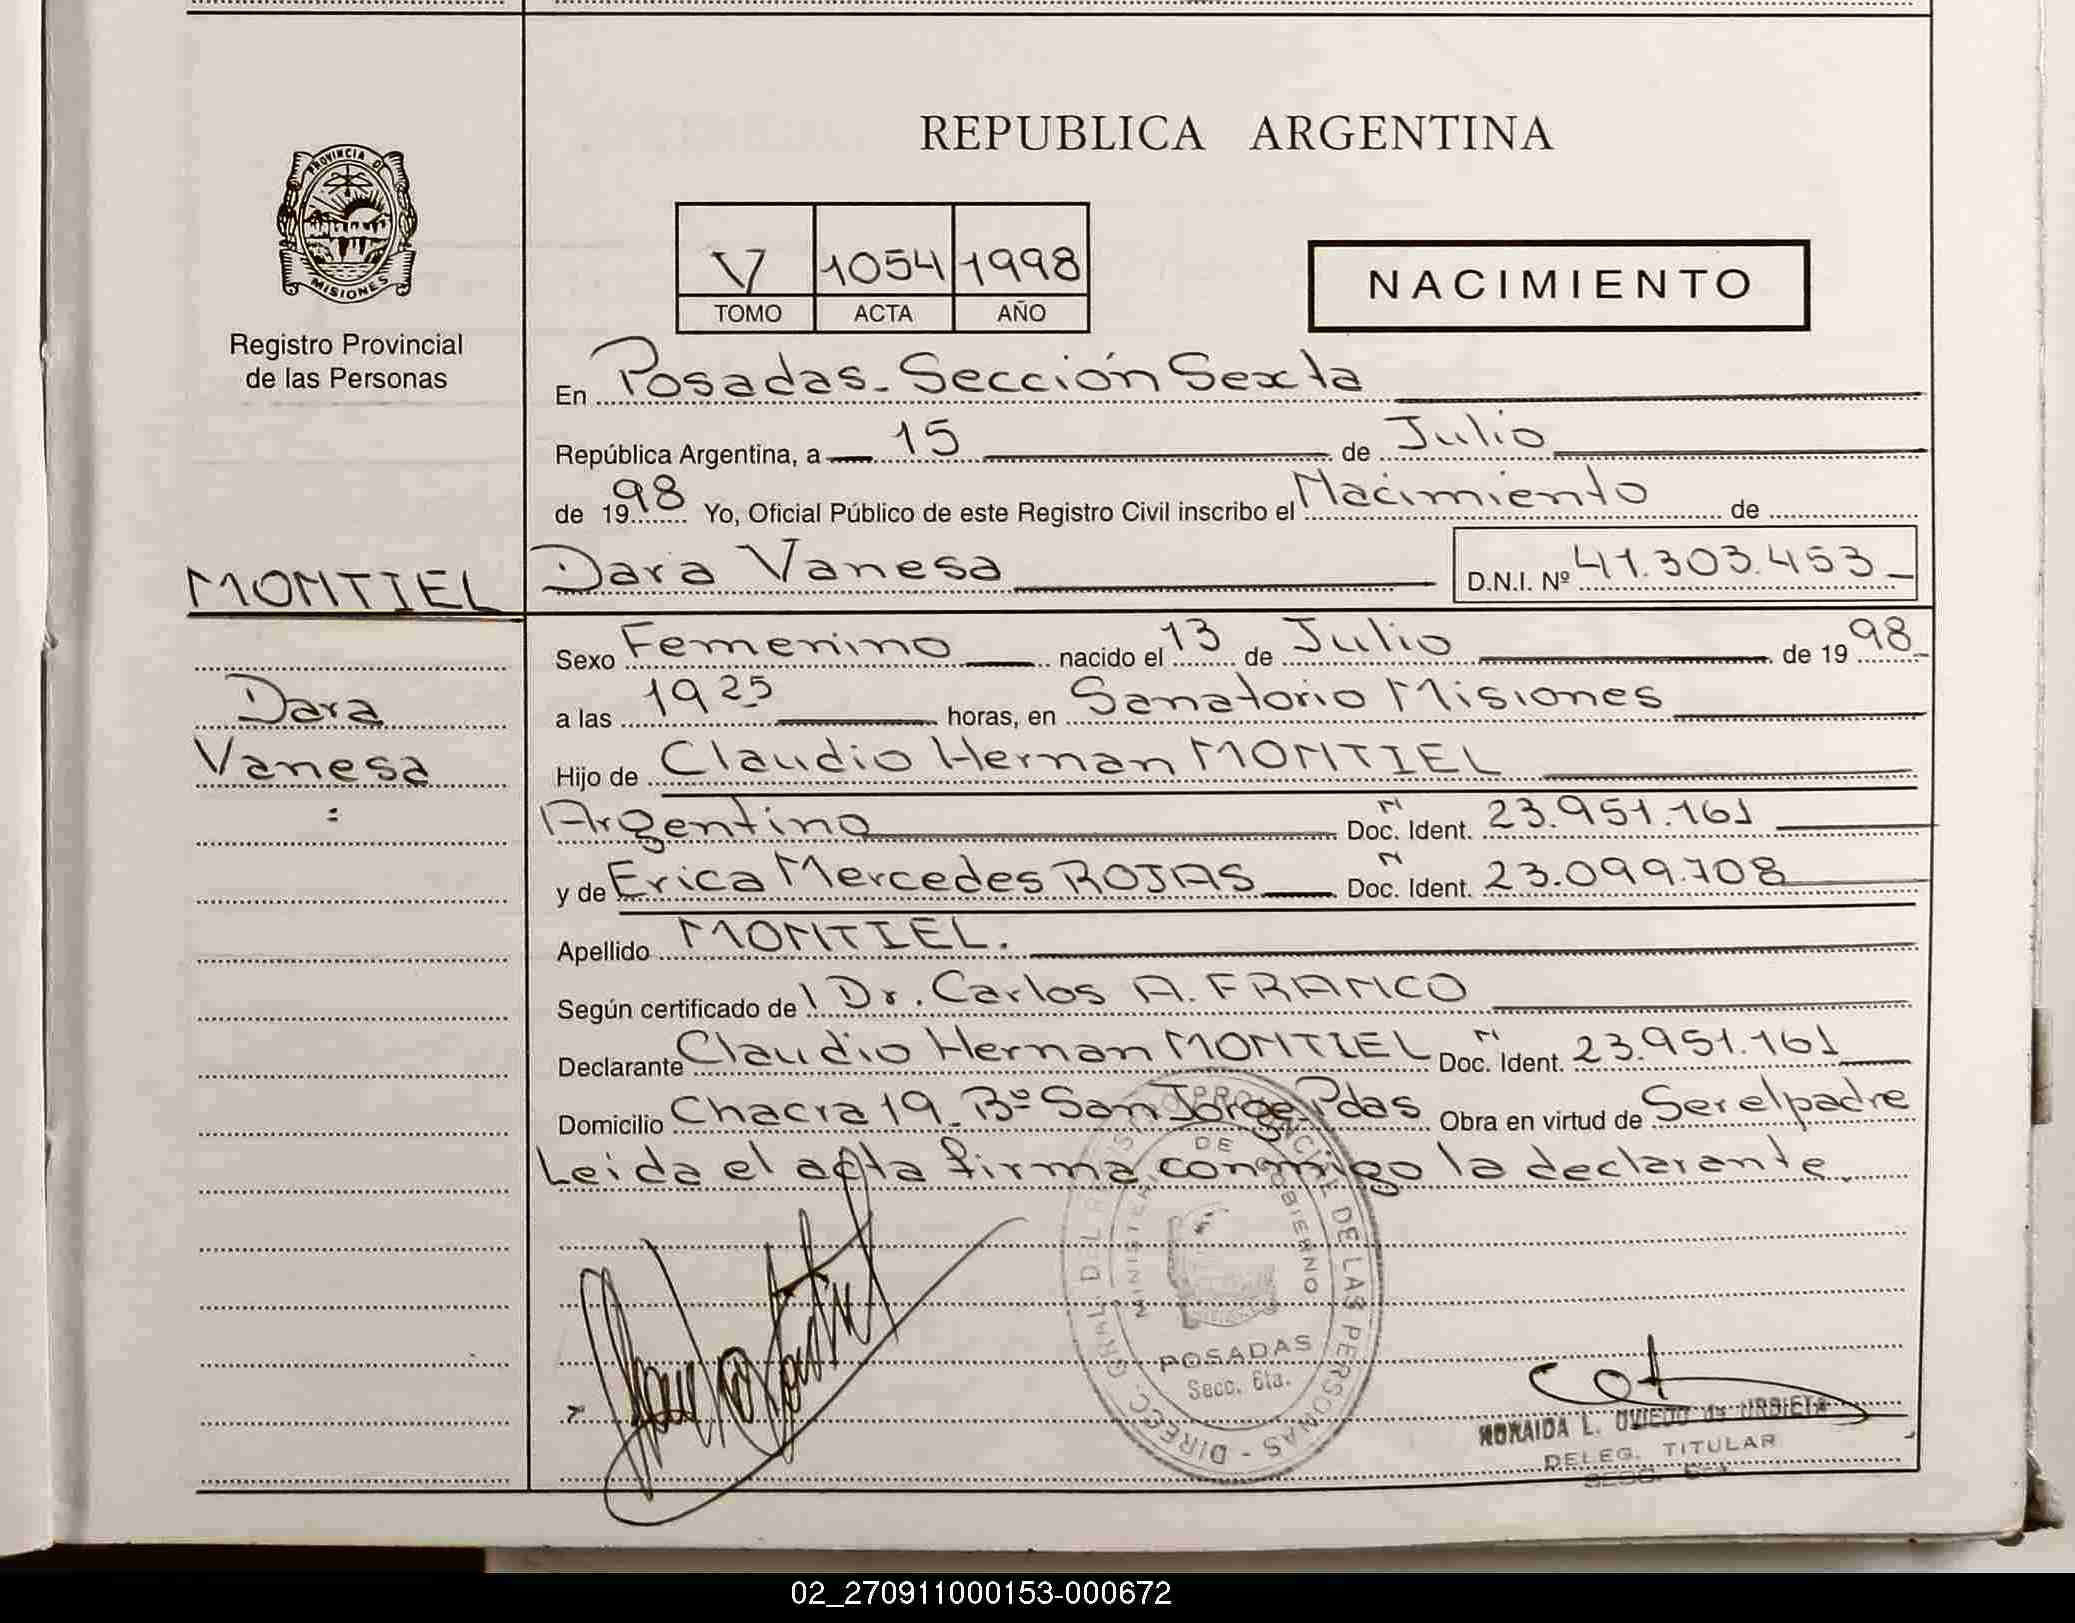 REPUBLICA ARGENTINA
PROVINCIA DE
MISIONES
Registro Provincial
de las Personas
V 1054 1998
TOMO ACTA AÑO
NACIMIENTO
En Posadas - Sección Sexta
República Argentina, a 15 de Julio
de 1998 Yo, Oficial Público de este Registro Civil inscribo el Nacimiento de
MONTIEL
Dara Vanesa D.N.I. Nº 41.303.453
Sexo Femenino nacido el 13 de Julio de 1998
Dara
Vanesa
a las 1925 horas, en Sanatorio Misiones
Hijo de Claudio Hernan MONTIEL
Argentino Doc. Ident. N 23.951.161
y de Erica Mercedes ROJAS Doc. Ident. N 23.099.708
Apellido MONTIEL.
Según certificado de Dr. Carlos A. FRANCO
Declarante Claudio Hernan MONTIEL Doc. Ident. N 23.951.161
Domicilio Chacra 19 - Bº San Jorge - Pdas Obra en virtud de Ser el padre
Leida el acta firma conmigo la declarante.
DIRECC. GRAL. DEL REGISTRO PROVINCIAL DE LAS PERSONAS
MINISTERIO DE GOBIERNO
POSADAS
Secc. 6ta.
L. OVIEDO de URBIETA
DELEG. TITULAR
SECC. 6ta
02_270911000153-000672